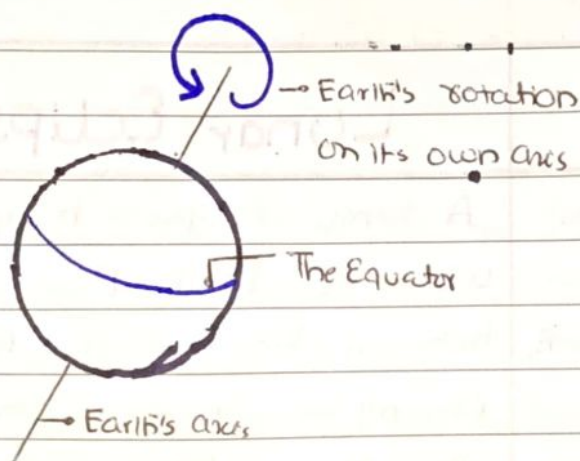 Earth's rotation
on its own axis
The Equator
Earth's axis